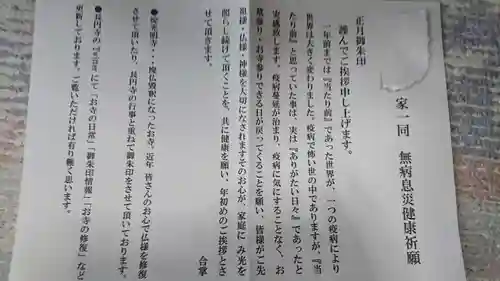 正月御朱印
家一同　無病息災健康祈願
謹んでご挨拶申し上げます。
一年前までは『当たり前』であった世界が、一つの疫病により
世界は大きく変わりました。疫病で怖い世の中でありますが、『当
たり前』と思っていた事は、実は『ありがたい日々』であったと
実感致します。疫病蔓延が治まり、疫病に気にすることなく、お
墓参り・お寺参りできる日が戻ってくることを願い、皆様がご先
祖様・仏様・神様を大切になされますそのお心が、家庭に み光を
照らし続けて頂くことを、共に健康を願い、年初めのご挨拶とさ
せて頂きます。
合掌
●廃仏毀釈になったお寺、近年 皆さんのお心で仏様を修復
させて頂いたり、長円寺の行事と重ねて御朱印をさせて頂いております。
●長円寺の Twitter にて「お寺の日常」「御朱印情報」「お寺の修復」など
更新しております。ご覧いただければ有り難く思います。